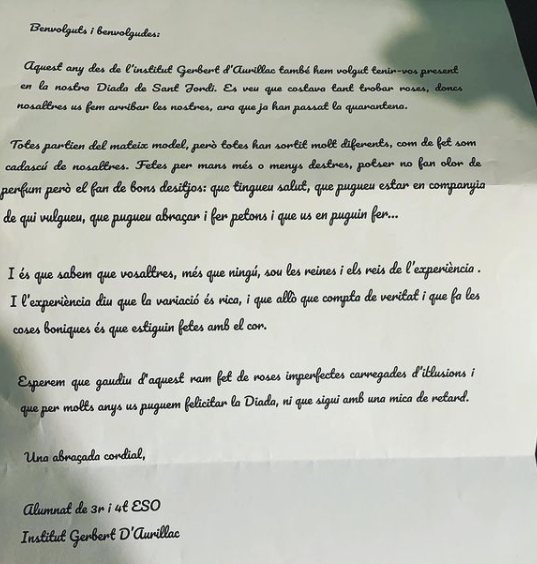 Benvolguts i benvolgudes:
Aquest any des de l'institut Gerbert d'Aurillac també hem volgut tenir-vos present
en la nostra Diada de Sant Jordi. Es veu que costava tant trobar roses, doncs
nosaltres us fem arribar les nostres, ara que ja han passat la quarantena.
Totes partien del mateix model, però totes han sortit molt diferents, com de fet som
cadascú de nosaltres. Fetes per mans més o menys destres, potser no fan olor de
perfum però el fan de bons desitjos: que tingueu salut, que pugueu estar en companyia
de qui vulgueu, que pugueu abraçar i fer petons i que us en puguin fer...
I és que sabem que vosaltres, més que ningú, sou les reines i els reis de l'experiència .
I l'experiència diu que la variació és rica, i que allò que compta de veritat i que fa les
coses boniques és que estiguin fetes amb el cor.
Esperem que gaudiu d'aquest ram fet de roses imperfectes carregades d'il·lusions i
que per molts anys us puguem felicitar la Diada, ni que sigui amb una mica de retard.
Una abraçada cordial,
Alumnat de 3r i 4t ESO
Institut Gerbert D'Aurillac